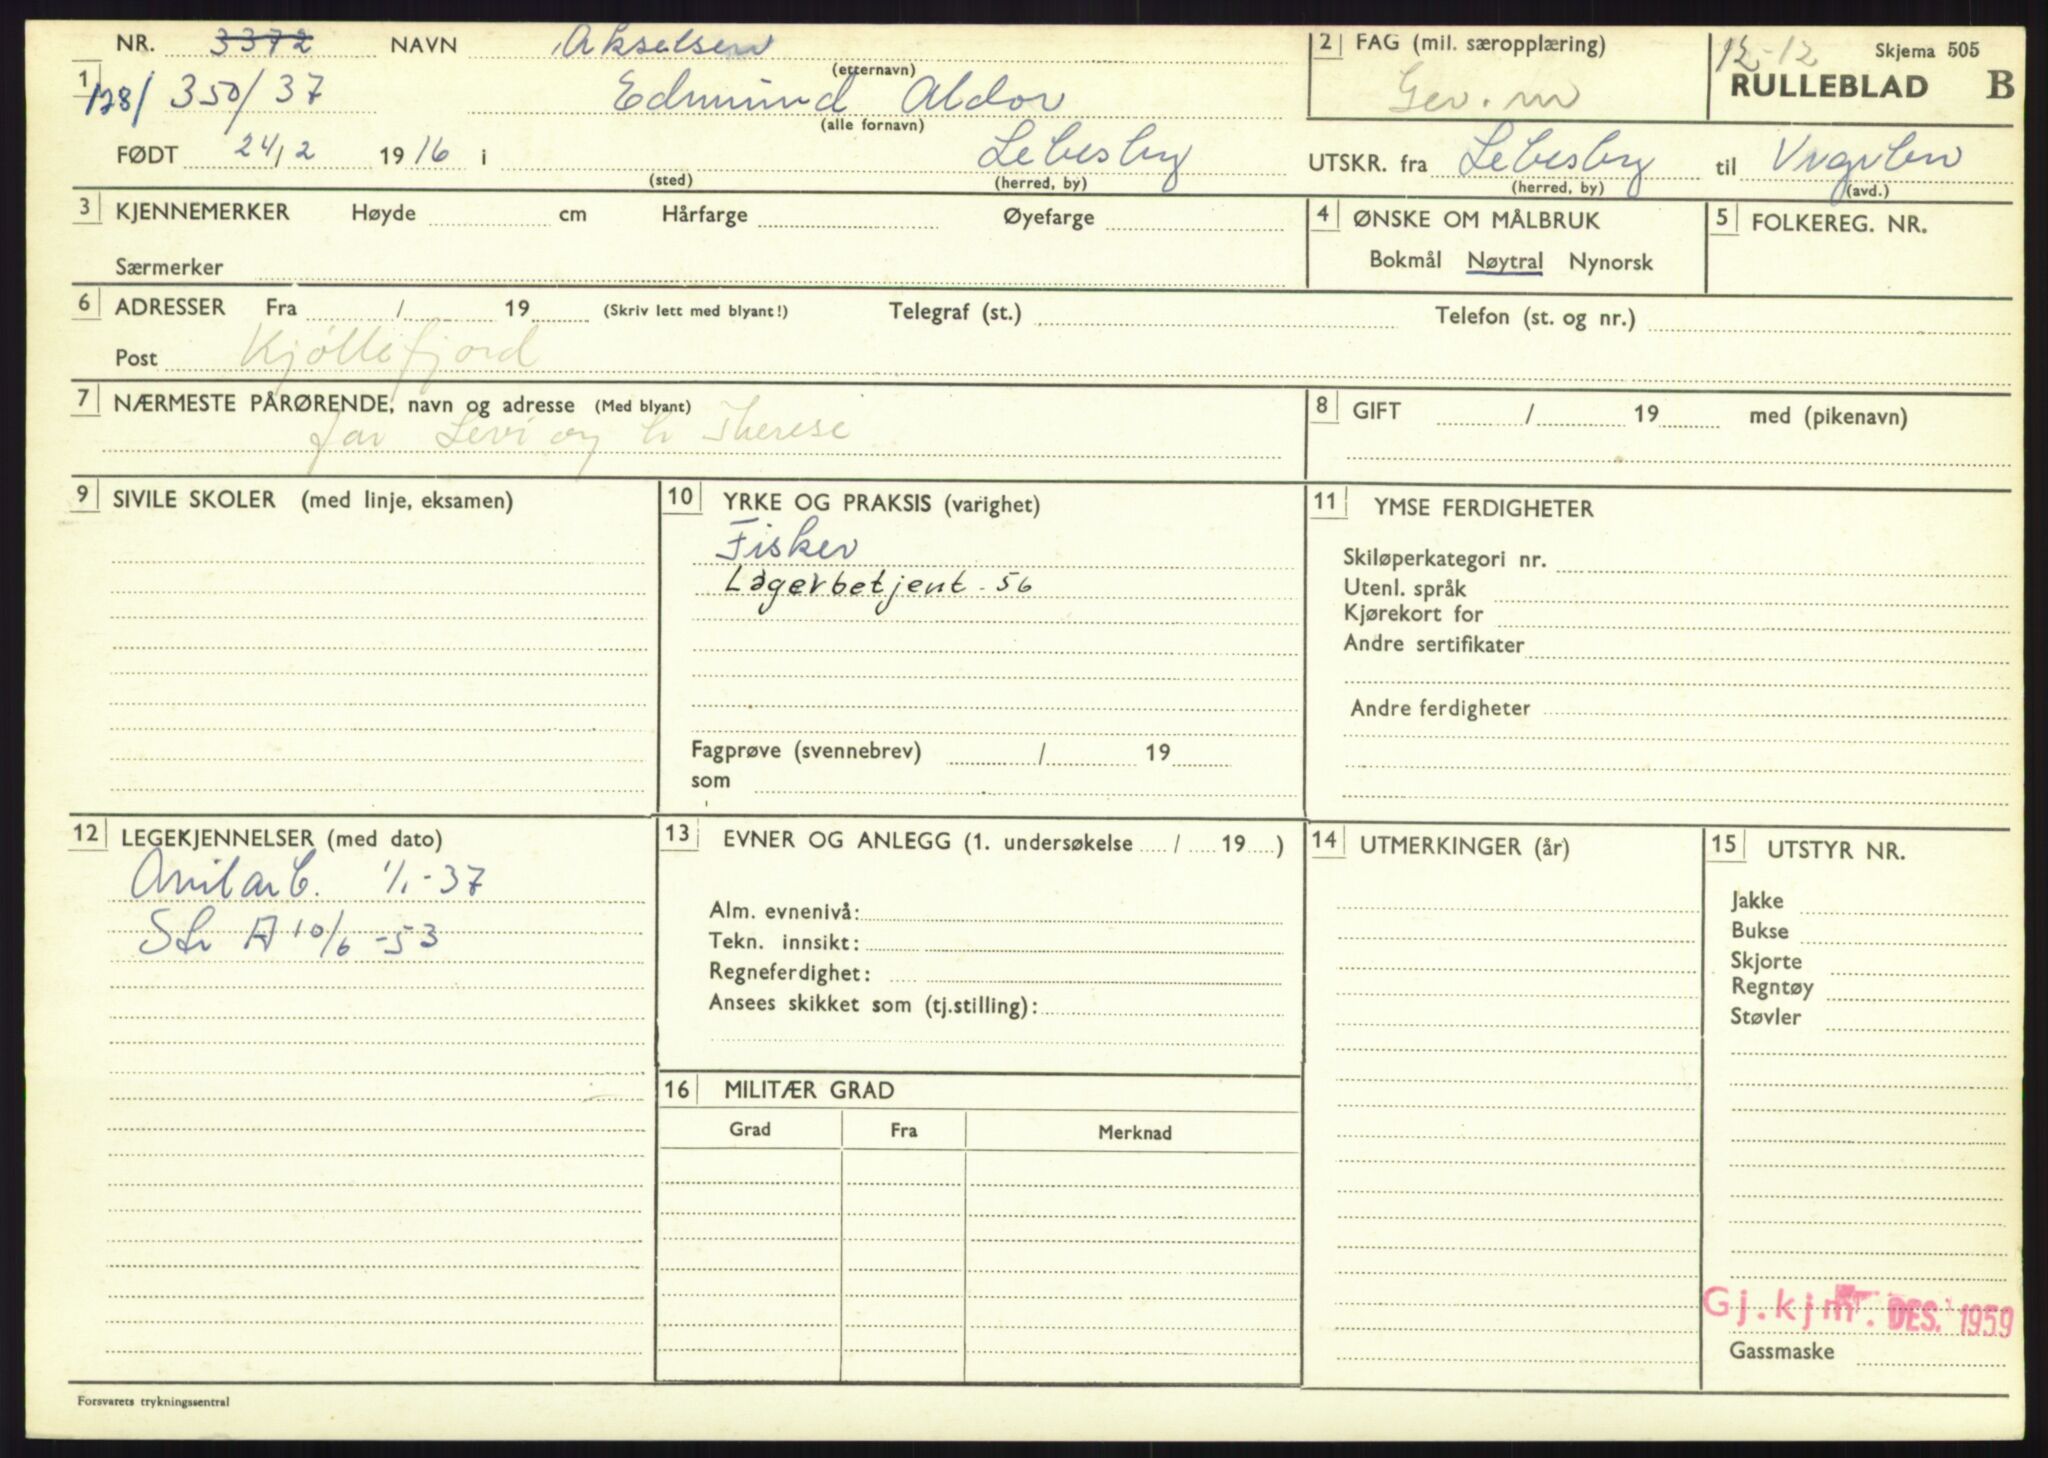 NR. 3372 NAVN Akselsen (etternavn)
1 128/ 350/37 Edmund Aldor (alle fornavn)
FØDT 24/2 1916 i (sted) Lebesby (herred, by)
2 FAG (mil. særopplæring) Gev.m
12-12 Skjema 505
RULLEBLAD B
UTSKR. fra Lebesby (herred, by) til (avd.)
3 KJENNEMERKER Høyde cm Hårfarge Øyefarge
Særmerker
4 ØNSKE OM MÅLBRUK
Bokmål Nøytral Nynorsk
5 FOLKEREG. NR.
6 ADRESSER Fra / 19 (Skriv lett med blyant!) Telegraf (st.) Telefon (st. og nr.)
Post Kjøllefjord
7 NÆRMESTE PÅRØRENDE, navn og adresse (Med blyant)
far Levi og h Therese
8 GIFT / 19 med (pikenavn)
9 SIVILE SKOLER (med linje, eksamen)
10 YRKE OG PRAKSIS (varighet)
Fisker
Lagerbetjent - 56
Fagprøve (svennebrev) / 19
som
11 YMSE FERDIGHETER
Skiløperkategori nr.
Utenl. språk
Kjørekort for
Andre sertifikater
Andre ferdigheter
12 LEGEKJENNELSER (med dato)
1/1-37
Str A 10/6-53
13 EVNER OG ANLEGG (1. undersøkelse / 19 )
Alm. evnenivå:
Tekn. innsikt:
Regneferdighet:
Ansees skikket som (tj.stilling):
14 UTMERKINGER (år)
15 UTSTYR NR.
Jakke
Bukse
Skjorte
Regntøy
Støvler
Gj.kjm. DES. 1959
Gassmaske
16 MILITÆR GRAD
Grad Fra Merknad
Forsvarets trykningssentral